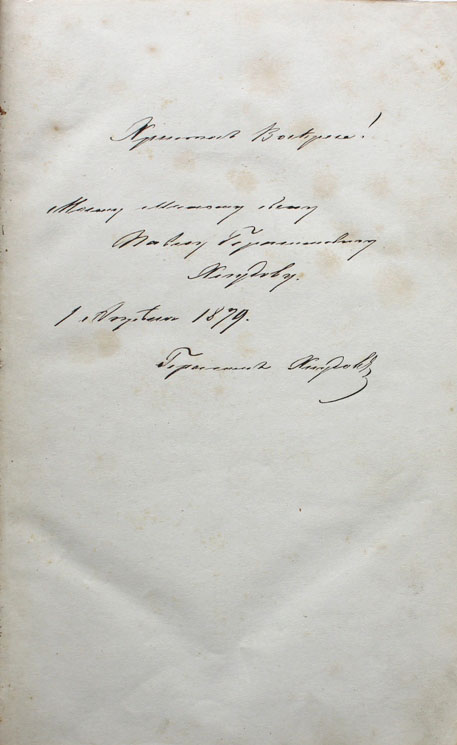 Христосъ Воскресе!
Моему Милому сыну
Павлу Герасимовичу
Хлудову.
1 Апрѣля 1879.
Герасимъ Хлудовъ